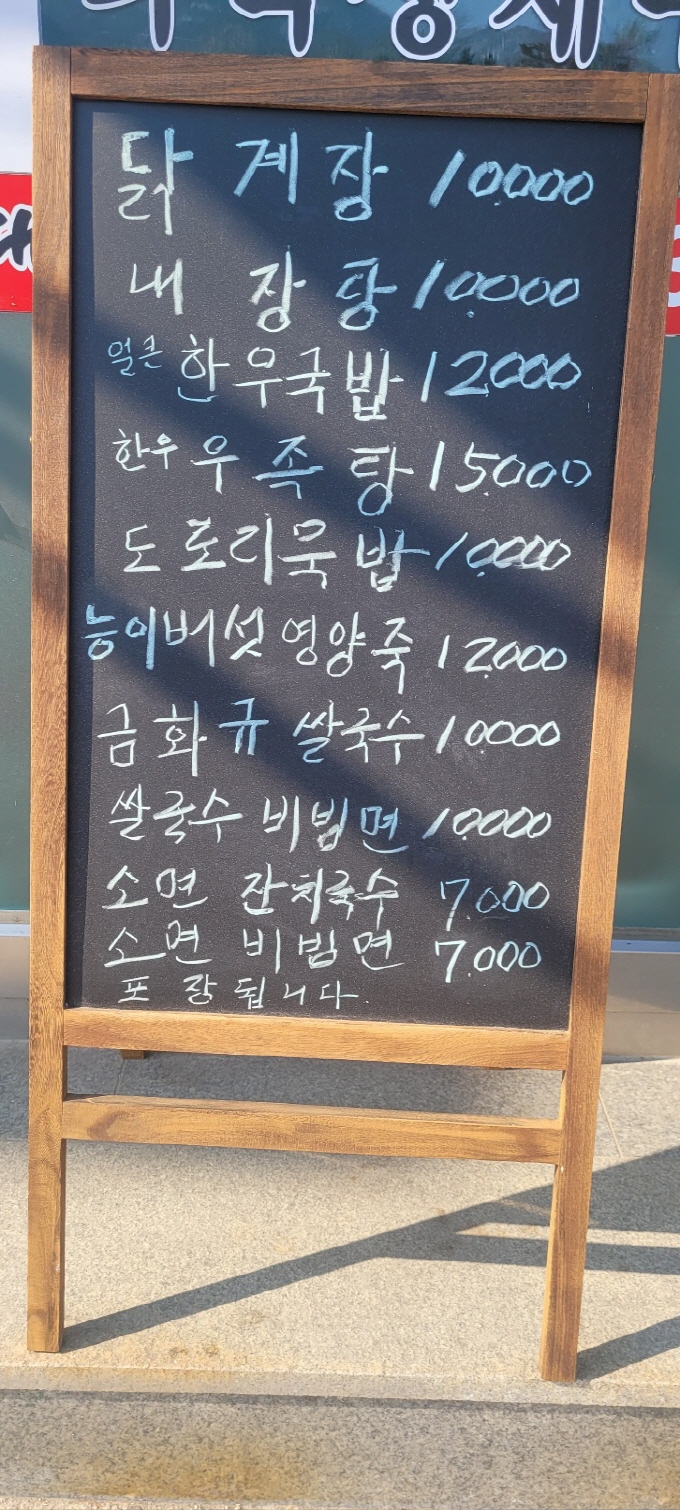 닭 계 장 10.000
내 장 탕 10.000
얼큰 한우국밥 12.000
한우 우족탕 15.000
도토리묵밥 10.000
능이버섯 영양죽 12.000
금화규 쌀국수 10.000
쌀국수 비빔면 10.000
소면 잔치국수 7.000
소면 비빔면 7.000
포장됩니다.